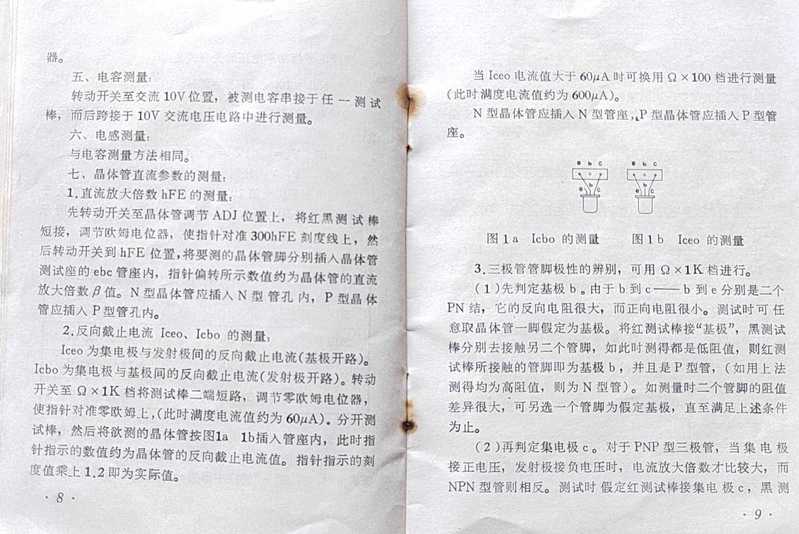 器。
五、电容测量：
转动开关至交流10V位置，被测电容串接于任一测试
棒，而后跨接于10V交流电压电路中进行测量。
六、电感测量：
与电容测量方法相同。
七、晶体管直流参数的测量：
1.直流放大倍数hFE的测量：
先转动开关至晶体管调节ADJ位置上，将红黑测试棒
短接，调节欧姆电位器，使指针对准300hFE刻度线上，然
后转动开关到hFE位置，将要测的晶体管脚分别插入晶体管
测试座的ebc管座内，指针偏转所示数值约为晶体管的直流
放大倍数β值。N型晶体管应插入N型管孔内，P型晶体
管应插入P型管孔内。
2.反向截止电流Iceo、Icbo的测量：
Iceo为集电极与发射极间的反向截止电流(基极开路)。
Icbo为集电极与基极间的反向截止电流(发射极开路)。转动
开关至Ω×1K档将测试棒二端短路，调节零欧姆电位器，
使指针对准零欧姆上，(此时满度电流值约为60μA)。分开测
试棒，然后将欲测的晶体管按图1a 1b插入管座内，此时指
针指示的数值约为晶体管的反向截止电流值。指针指示的刻
度值乘上1.2即为实际值。
·8·
当Iceo电流值大于60μA时可换用Ω×100档进行测量
(此时满度电流值约为600μA)。
N型晶体管应插入N型管座，P型晶体管应插入P型管
座。
e b c e b c
b e c b e c
图1a Icbo的测量 图1b Iceo的测量
3.三极管管脚极性的辨别，可用Ω×1K档进行。
(1)先判定基极b。由于b到c——b到e分别是二个
PN结，它的反向电阻很大，而正向电阻很小。测试时可任
意取晶体管一脚假定为基极。将红测试棒接“基极”，黑测试
棒分别去接触另二个管脚，如此时测得都是低阻值，则红测
试棒所接触的管脚即为基极b，并且是P型管，(如用上法
测得均为高阻值，则为N型管)。如测量时二个管脚的阻值
差异很大，可另选一个管脚为假定基极，直至满足上述条件
为止。
(2)再判定集电极c。对于PNP型三极管，当集电极
接正电压，发射极接负电压时，电流放大倍数才比较大，而
NPN型管则相反。测试时假定红测试棒接集电极c，黑测
·9·